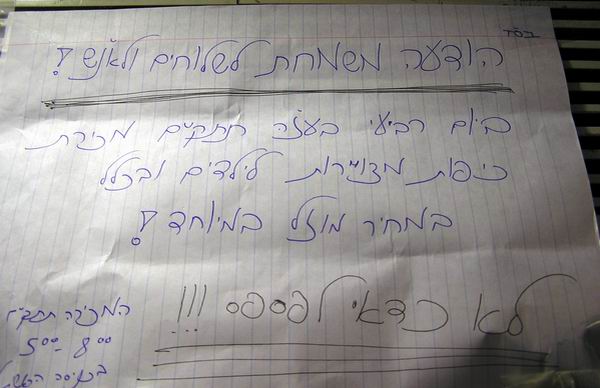 בסד
הודעה משמחת לשלוחים ולאנ"ש!
ביום רביעי בעז"ה תתקיים מכירת
כיפות מצויירות לילדים ובכלל
במחיר מוזל במיוחד!
לא כדאי לפספס!!!
המכירה תתקיים
5:00-8:00